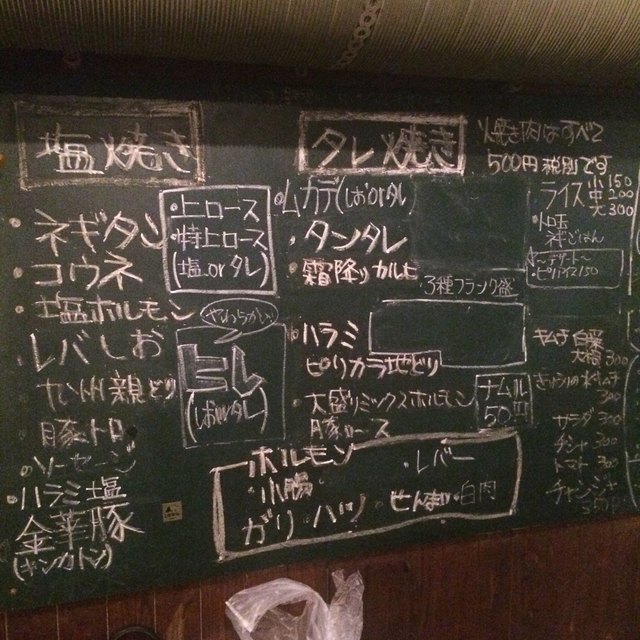 塩焼き
ネギタン
コウネ
塩ホルモン
レバしお
九州親どり
豚トロ
ソーセージ
ハラミ塩
金華豚
(キンカトン)
・上ロース
・特上ロース
(塩orタレ)
やわらかい
ヒレ
(しおorタレ)
タレ焼き
・ムカデ(しおorタレ
・タンタレ
・霜降りカルビ
3種フランク盛
・ハラミ
ピリカラ地どり
・大盛りミックスホルモン
豚ロース
ナムル
50円
ホルモン
・レバー
・小腸
ガリ・ハツ・せんまい・白肉
焼き肉はすべて
500円税別です
ライス小150
中200
大300
・トロ玉
ネギごはん
〜デザート〜
キムチ 白菜
大根300
きゅうりの水キムチ
300
サラダ300
チシャ300
トマト300
チャンジャ